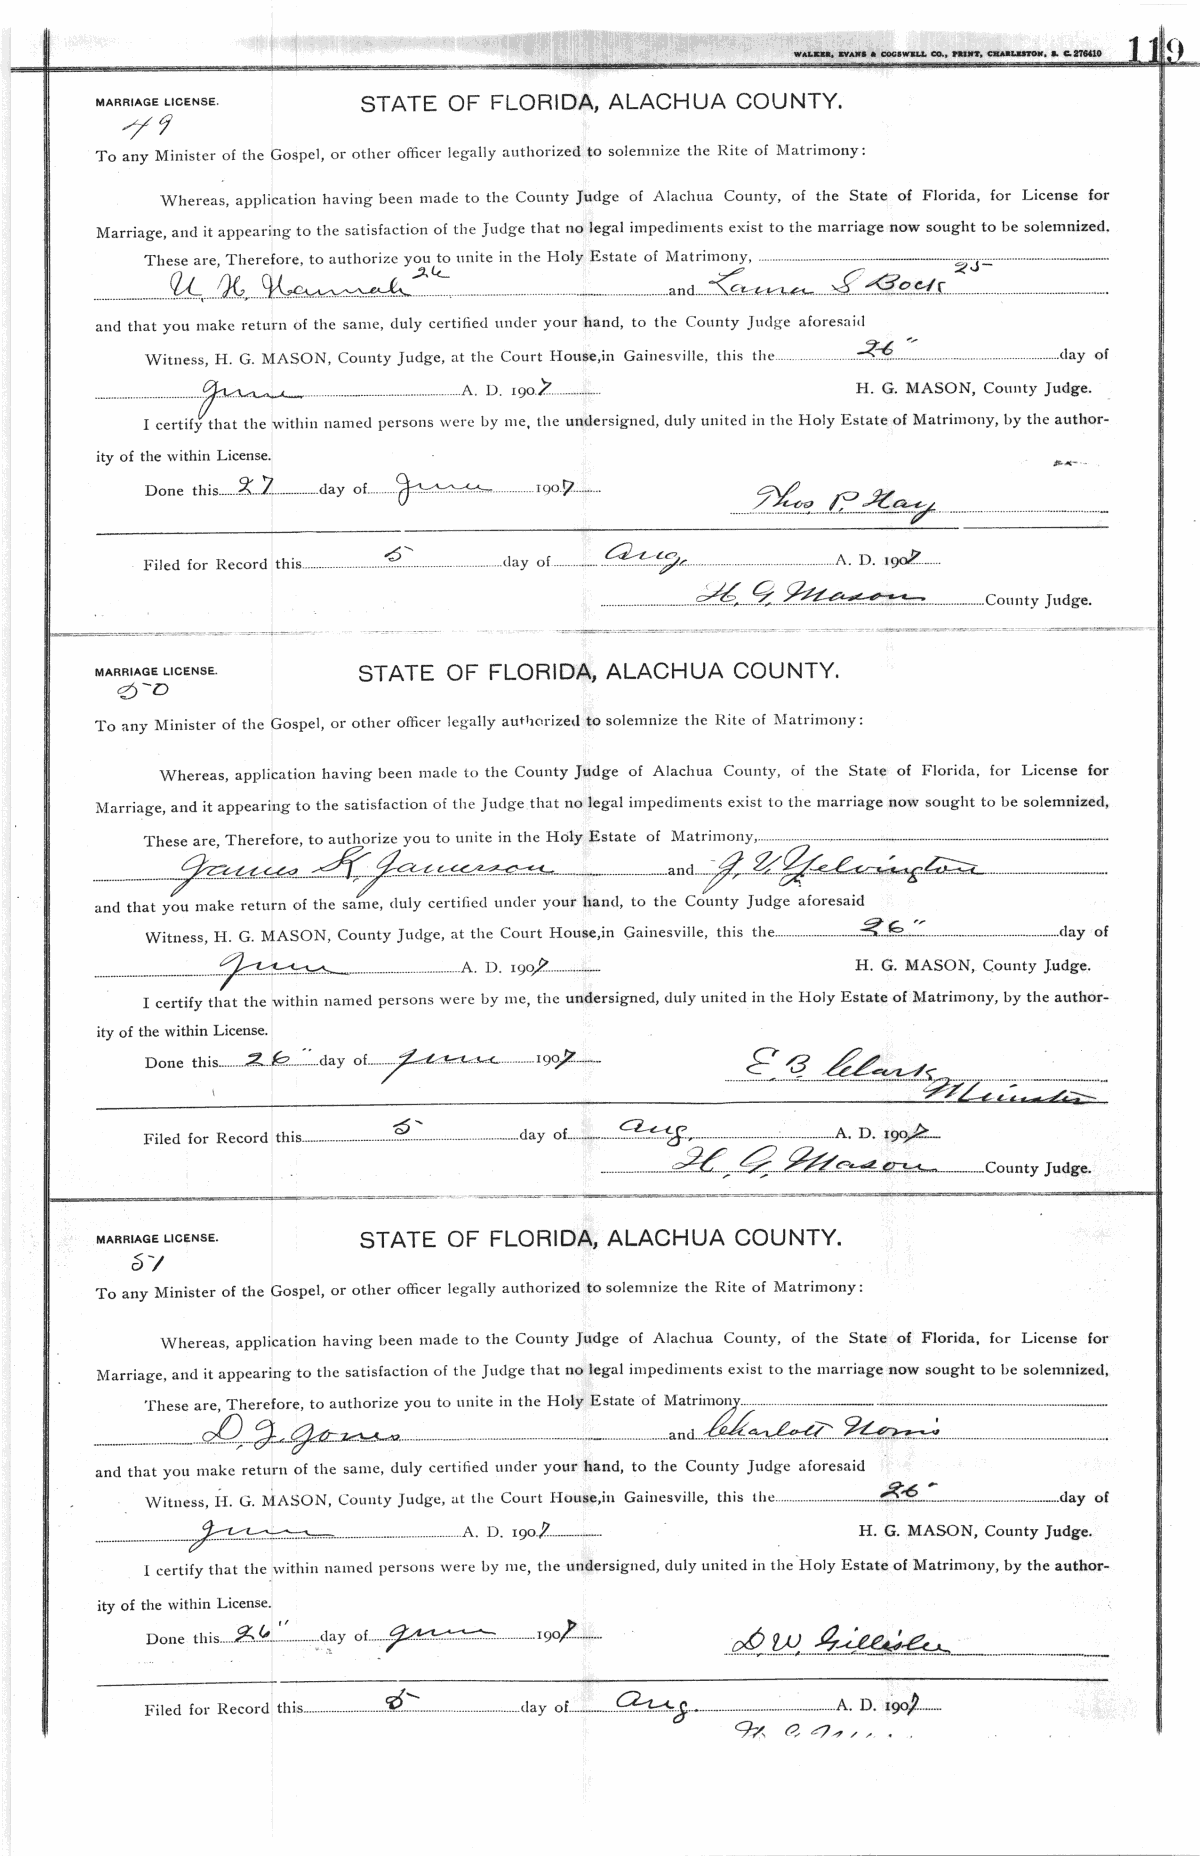 WALKER, EVANS & COGSWELL CO., PRINT, CHARLESTON, S. C. 276410 119
MARRIAGE LICENSE. STATE OF FLORIDA, ALACHUA COUNTY.
49
To any Minister of the Gospel, or other officer legally authorized to solemnize the Rite of Matrimony:
Whereas, application having been made to the County Judge of Alachua County, of the State of Florida, for License for
Marriage, and it appearing to the satisfaction of the Judge that no legal impediments exist to the marriage now sought to be solemnized.
These are, Therefore, to authorize you to unite in the Holy Estate of Matrimony,
U. H. Hannah 26 and Laura S Bock 25
and that you make return of the same, duly certified under your hand, to the County Judge aforesaid
Witness, H. G. MASON, County Judge, at the Court House, in Gainesville, this the 26" day of
June A. D. 1907 H. G. MASON, County Judge.
I certify that the within named persons were by me, the undersigned, duly united in the Holy Estate of Matrimony, by the author-
ity of the within License.
Done this 27 day of June 1907 Thos. P. Hay
Filed for Record this 5 day of Aug. A. D. 1907
H. G. Mason County Judge.
MARRIAGE LICENSE. STATE OF FLORIDA, ALACHUA COUNTY.
50
To any Minister of the Gospel, or other officer legally authorized to solemnize the Rite of Matrimony:
Whereas, application having been made to the County Judge of Alachua County, of the State of Florida, for License for
Marriage, and it appearing to the satisfaction of the Judge that no legal impediments exist to the marriage now sought to be solemnized,
These are, Therefore, to authorize you to unite in the Holy Estate of Matrimony,
James K. Jamerson and J. V. Yelvington
and that you make return of the same, duly certified under your hand, to the County Judge aforesaid
Witness, H. G. MASON, County Judge, at the Court House, in Gainesville, this the 26" day of
June A. D. 1907 H. G. MASON, County Judge.
I certify that the within named persons were by me, the undersigned, duly united in the Holy Estate of Matrimony, by the author-
ity of the within License.
Done this 26" day of June 1907 E. B. Clark
Minister
Filed for Record this 5 day of Aug. A. D. 1907
H. G. Mason County Judge.
MARRIAGE LICENSE. STATE OF FLORIDA, ALACHUA COUNTY.
51
To any Minister of the Gospel, or other officer legally authorized to solemnize the Rite of Matrimony:
Whereas, application having been made to the County Judge of Alachua County, of the State of Florida, for License for
Marriage, and it appearing to the satisfaction of the Judge that no legal impediments exist to the marriage now sought to be solemnized,
These are, Therefore, to authorize you to unite in the Holy Estate of Matrimony
D. J. Jones and Charlott Norris
and that you make return of the same, duly certified under your hand, to the County Judge aforesaid
Witness, H. G. MASON, County Judge, at the Court House, in Gainesville, this the 26" day of
June A. D. 1907 H. G. MASON, County Judge.
I certify that the within named persons were by me, the undersigned, duly united in the Holy Estate of Matrimony, by the author-
ity of the within License.
Done this 26" day of June 1907 D. W. Gillislee
Filed for Record this 5 day of Aug. A. D. 1907